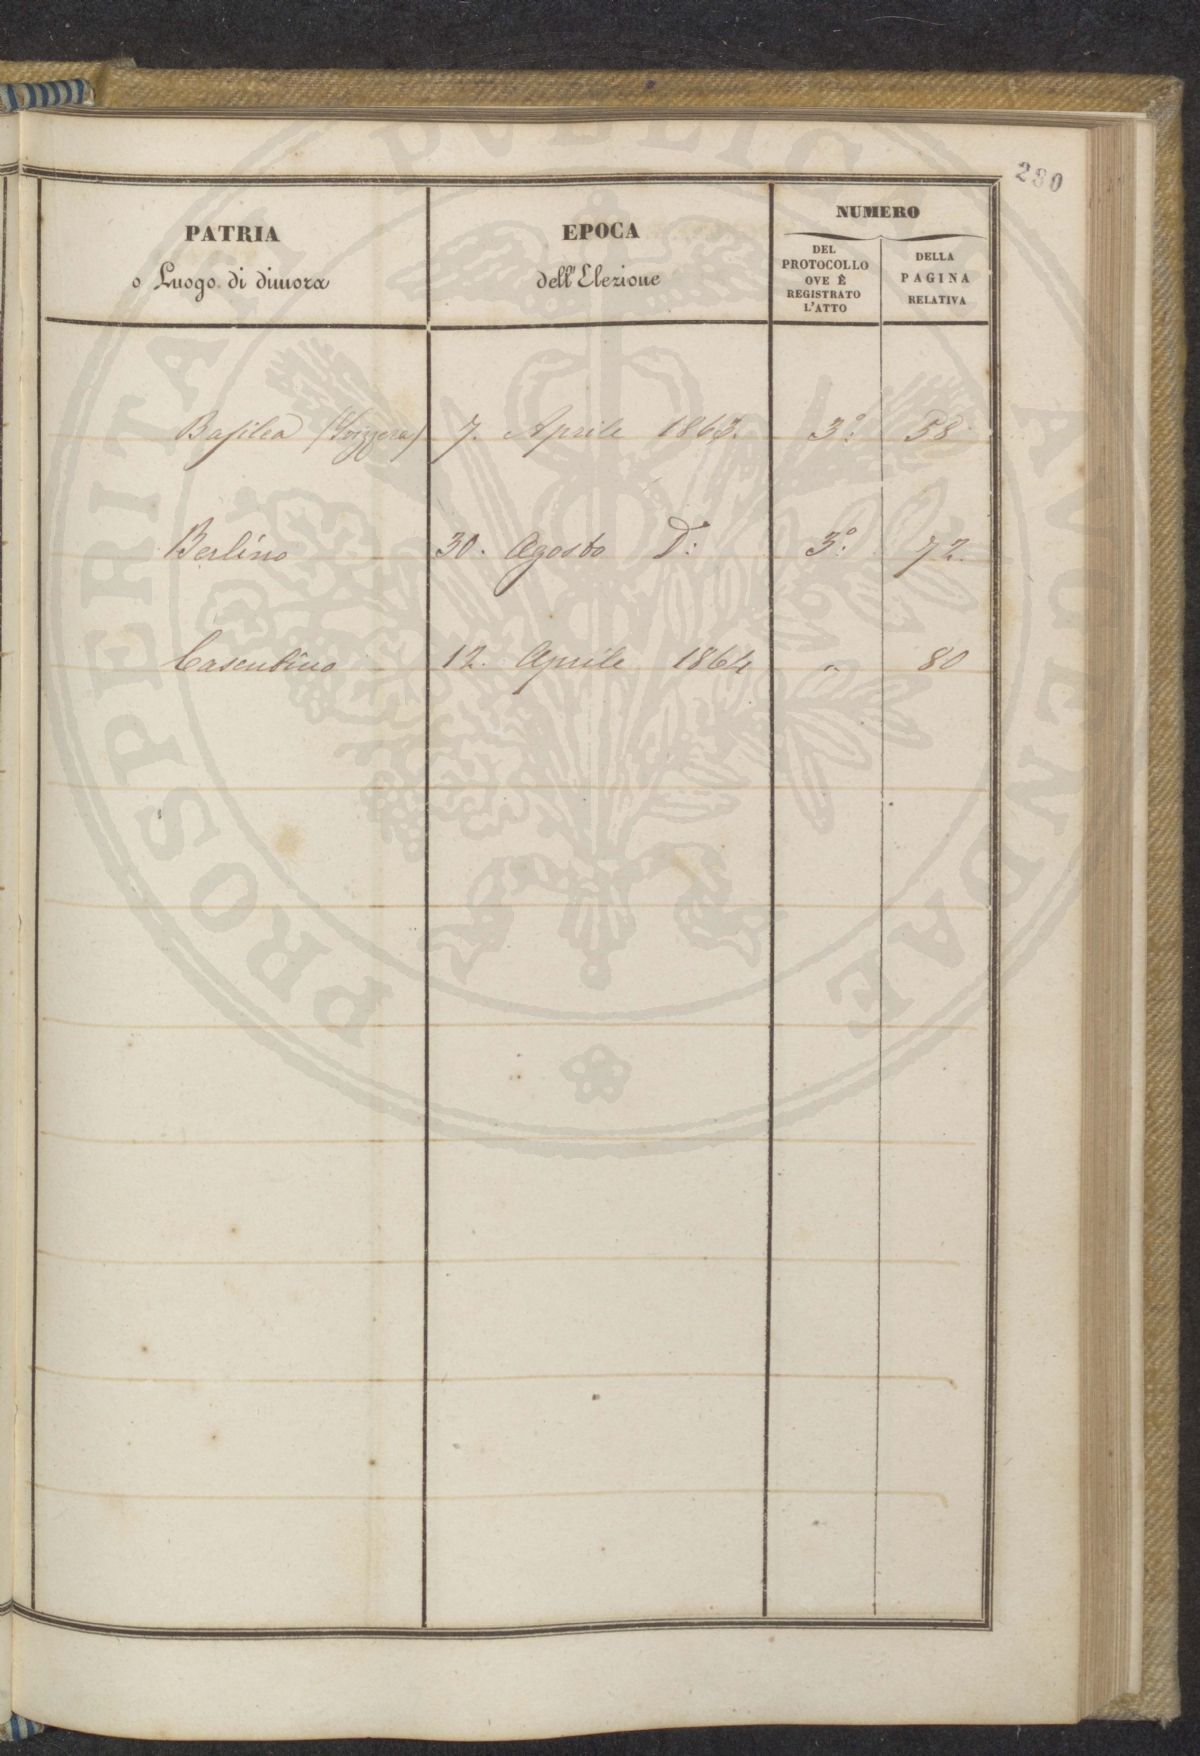 280
PATRIA
o Luogo di dimora
EPOCA
dell'Elezione
NUMERO
DEL
PROTOCOLLO
OVE È
REGISTRATO
L'ATTO
DELLA
PAGINA
RELATIVA
Basilea (Svizzera) 7. Aprile 1863. 3º: 58
Berlino 30. Agosto D: 3º: 72.
Casentino 12. Aprile 1864 " 80
PROSPERITATI PVBLICAE AVGENDAE